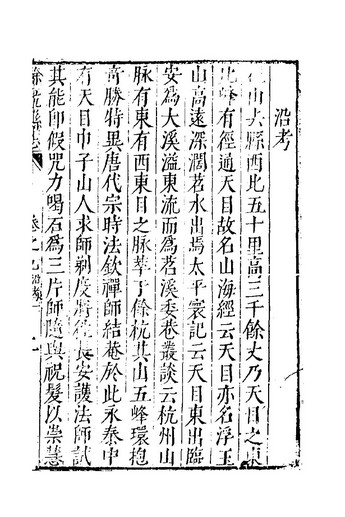 沿考
山去縣西北五十里高三千餘丈乃天目之東
北峰有徑通天目故名山海經云天目亦名浮玉
山高遠深濶苕水出焉太平寰記云天目東出臨
安為大溪溢東流而為苕溪委巷叢談云杭州山
脉有東有西東目之脉萃于餘杭其山五峰環抱
奇勝特異唐代宗時法欽禪師結菴於此永泰中
有天目巾子山人求師剃度將往長安護法師試
其能即假咒力喝石為三片師隨與祝髮以崇慧
餘杭縣志 卷之九